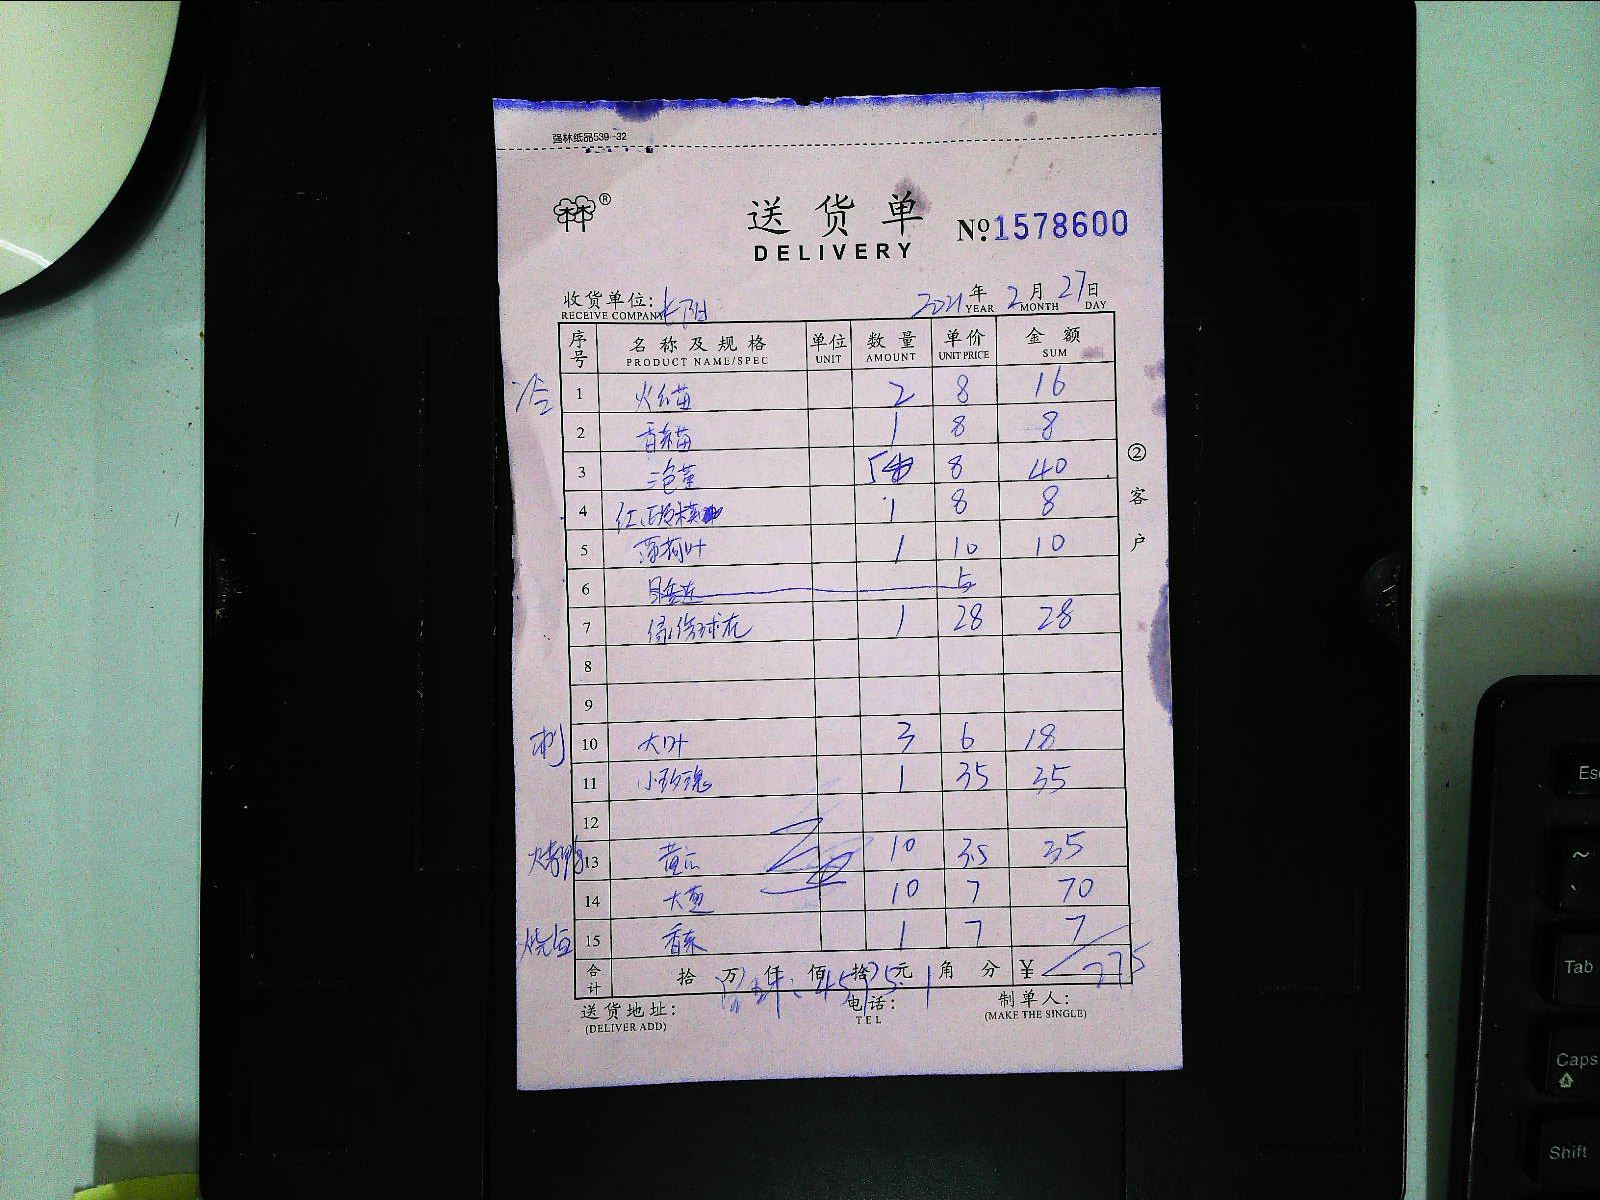 强林纸品539-32
送货单
DELIVERY
No.1578600
收货单位: 长阳 2021年 2月 27日
RECEIVE COMPANY YEAR MONTH DAY
序号 名称及规格 单位 数量 单价 金额
PRODUCT NAME/SPEC UNIT AMOUNT UNIT PRICE SUM
冷 1 火红苗 2 8 16
2 香菜苗 1 8 8
3 三色堇 5 8 40
4 1 8 8
5 薄荷叶 1 10 10
6 5
7 绿绣球花 1 28 28
8
9
刺 10 大叶 3 6 18
11 小玫瑰 1 35 35
12
烤鸭 13 黄瓜 10 3.5 35
14 大葱 10 7 70
15 香菜 1 7 7
合计 拾 万 仟 佰 拾 元 角 分 ¥ 275
送货地址: 电话: 制单人:
(DELIVER ADD) TEL (MAKE THE SINGLE)
②客户
Esc
~
Tab
Caps
Shift